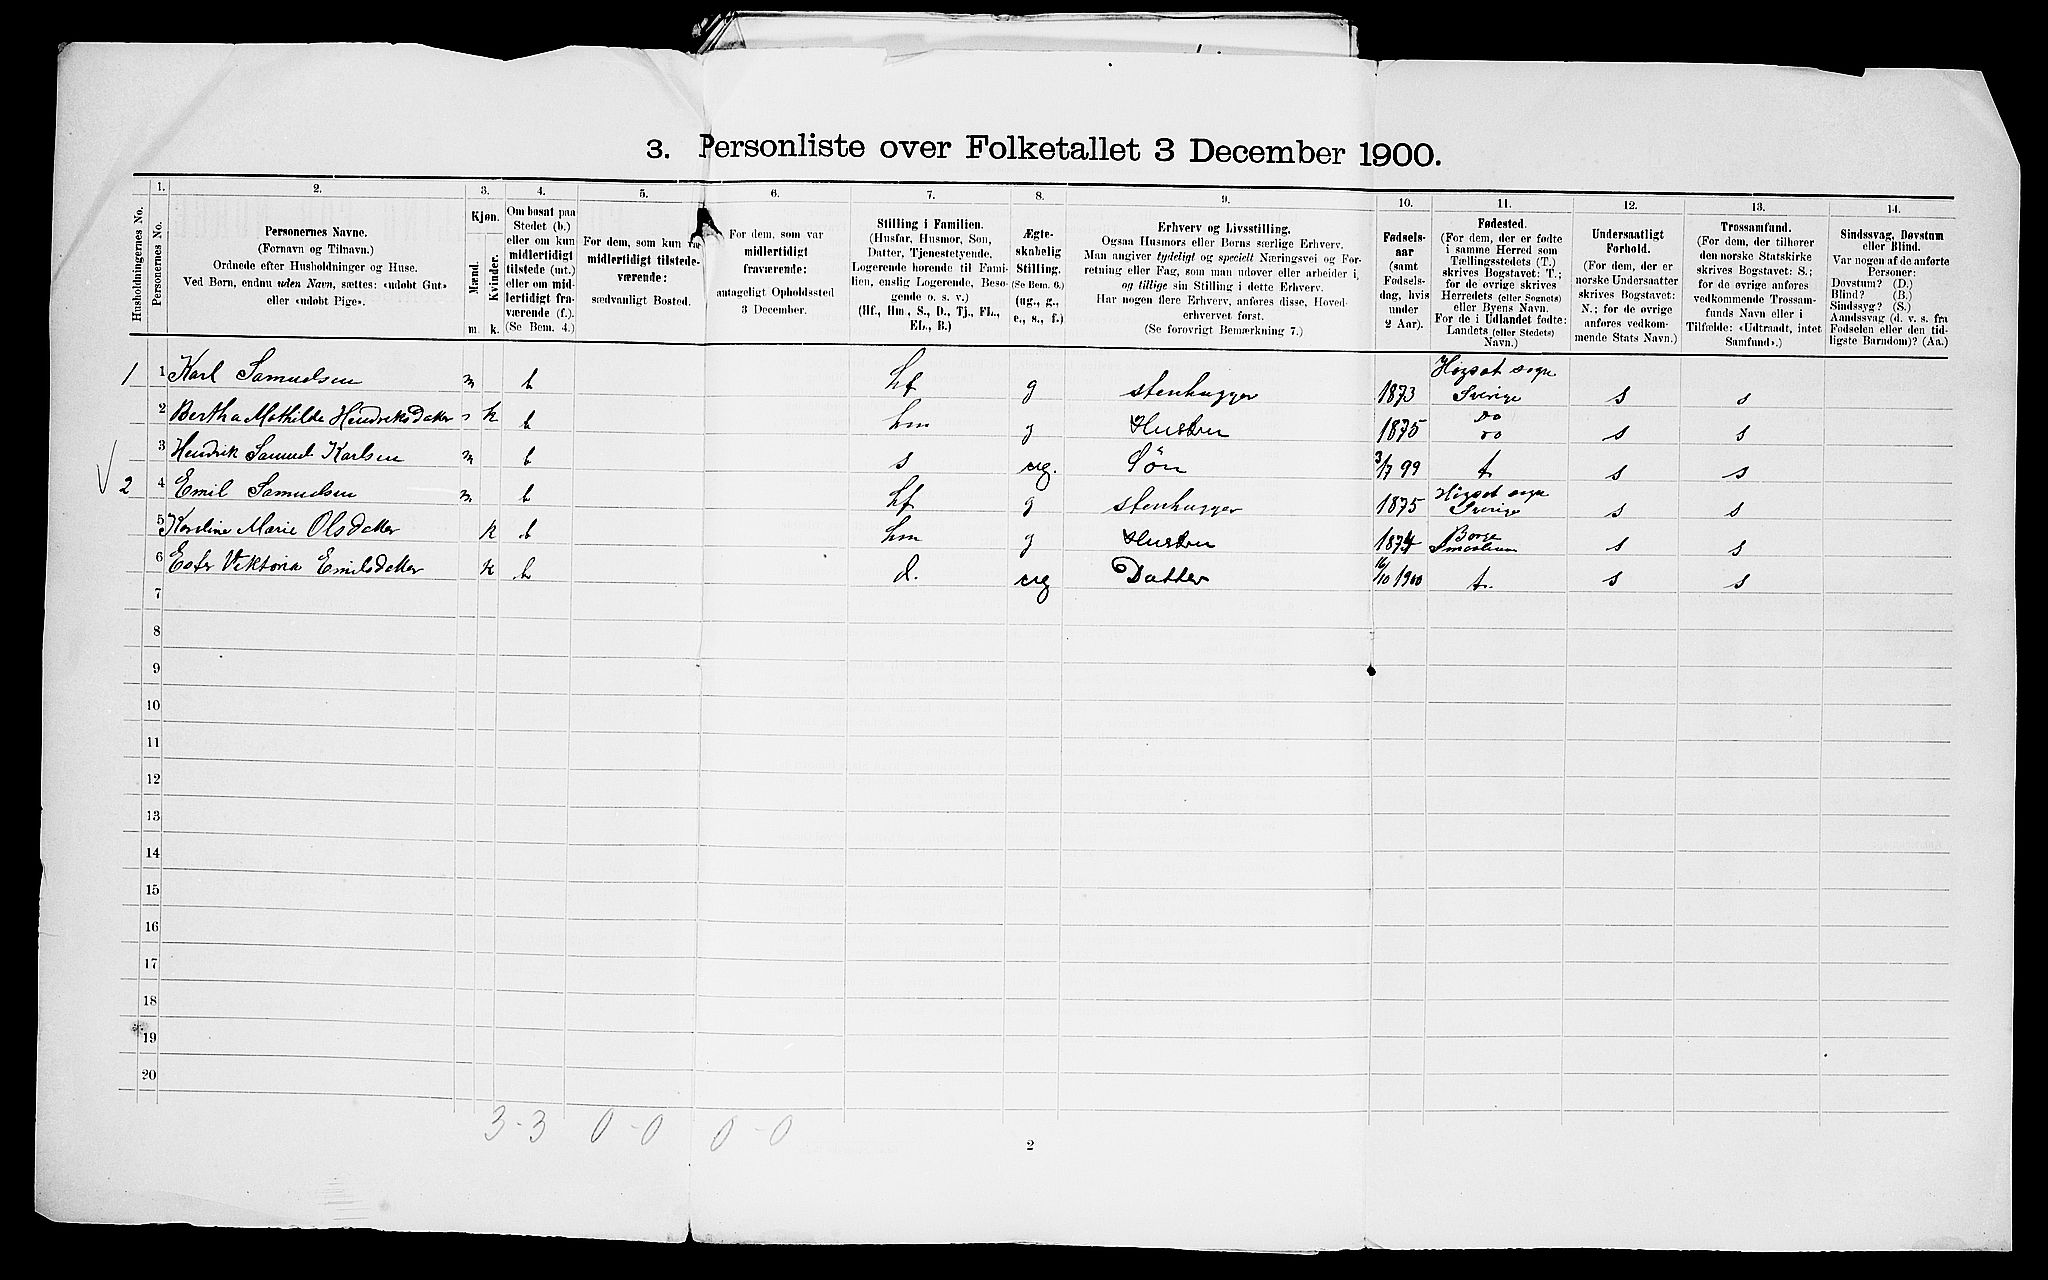 3. Personliste over Folketallet 3 December 1900.
1. 2. 3. 4. 5. 6. 7. 8. 9. 10. 11. 12. 13. 14.
Husholdningernes No.
Personernes No.
Personernes Navne.
(Fornavn og Tilnavn.)
Ordnede efter Husholdninger og Huse.
Ved Børn, endnu uden Navn, sættes: «udøbt Gut»
eller «udøbt Pige».
Kjøn.
Mænd.
Kvinder.
m. k.
Om bosat paa
Stedet (b.)
eller om kun
midlertidigt
tilstede (mt.)
eller om mid-
lertidigt fra-
værende (f.).
(Se Bem. 4.)
For dem, som kun var
midlertidigt tilstede-
værende:
sædvanligt Bosted.
For dem, som var
midlertidigt
fraværende:
antageligt Opholdssted
3 December.
Stilling i Familien.
(Husfar, Husmor, Søn,
Datter, Tjenestetyende,
Logerende hørende til Fami-
lien, enslig Logerende, Besø-
gende o. s. v.)
(Hf., Hm., S., D., Tj., FL.,
EL., B.)
Ægte-
skabelig
Stilling.
(Se Bem. 6.)
(ug., g.,
e., s., f.)
Erhverv og Livsstilling.
Ogsaa Husmors eller Børns særlige Erhverv.
Man angiver tydeligt og specielt Næringsvei og For-
retning eller Fag, som man udøver eller arbeider i,
og tillige sin Stilling i dette Erhverv.
Har nogen flere Erhverv, anføres disse, Hoved-
erhvervet først.
(Se forøvrigt Bemærkning 7.)
Fødsels-
aar
(samt
Fødsels-
dag, hvis
under
2 Aar).
Fødested.
(For dem, der er fødte
i samme Herred som
Tællingsstedets (T.)
skrives Bogstavet: T.;
for de øvrige skrives
Herredets (eller Sognets)
eller Byens Navn.
For de i Udlandet fødte:
Landets (eller Stedets)
Navn.)
Undersaatligt
Forhold.
(For dem, der er
norske Undersaatter
skrives Bogstavet:
N.; for de øvrige
anføres vedkom-
mende Stats Navn.)
Trossamfund.
(For dem, der tilhører
den norske Statskirke
skrives Bogstavet: S.;
for de øvrige anføres
vedkommende Trossam-
funds Navn eller i
Tilfælde: «Udtraadt, intet
Samfund».)
Sindssvag, Døvstum
eller Blind.
Var nogen af de anførte
Personer:
Døvstum? (D.)
Blind? (B.)
Sindssyg? (S.)
Aandssvag (d. v. s. fra
Fødselen eller den tid-
ligste Barndom)? (Aa.)
1 1 Karl Samuelsen m b hf g stenhugger 1873 Hogsat sogn Sverige s s
2 Bertha Mathilde Hendriksdatter k b hm g Hustru 1875 do do s s
3 Hendrik Samuel Karlsen m b s ug. Søn 3/7 99 t s s
2 4 Emil Samuelsen m b hf g stenhugger 1875 Hogsat sogn Sverige s s
5 Karoline Marie Olsdatter k b hm g Hustru 1874 Borge s s
6 Ester Viktoria Emilsdatter k b d. ug Datter 16/10 1900 t. s s
7
8
9
10
11
12
13
14
15
16
17
18
19
20
3-3 0-0 0-0
2